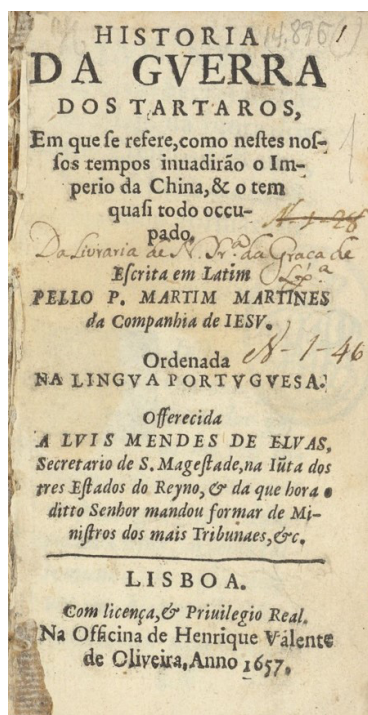 HISTORIA 14.896
DA GVERRA
DOS TARTAROS,
Em que ſe refere,como neſtes noſ-
ſos tempos inuadirão o Im-
perio da China,& o tem
quaſi todo occu-
pado.
N-1-28
Da Livraria de N. Srª. da Graça de
Lxª
Eſcrita em Latim
PELLO P. MARTIM MARTINES
da Companhia de IESV.
Ordenada
N-1-46
NA LINGVA PORTVGVESA.
Offerecida
A LVIS MENDES DE ELVAS,
Secretario de S. Mageſtade,na Iũta dos
tres Eſtados do Reyno, & da que hora o
ditto Senhor mandou formar de Mi-
niſtros dos mais Tribunaes,&c.
LISBOA.
Com licença,& Priuilegio Real.
Na Officina de Henrique Valente
de Oliveira, Anno 1657.